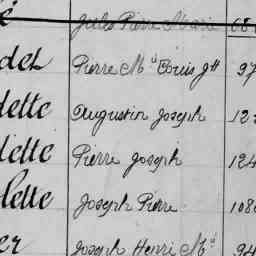 Jules Pierre Marie
det Pierre Mie Louis Jh 97
dette Augustin Joseph 12
dette Pierre Joseph 124
lette Joseph Pierre 108
er Joseph Henri Mie 94